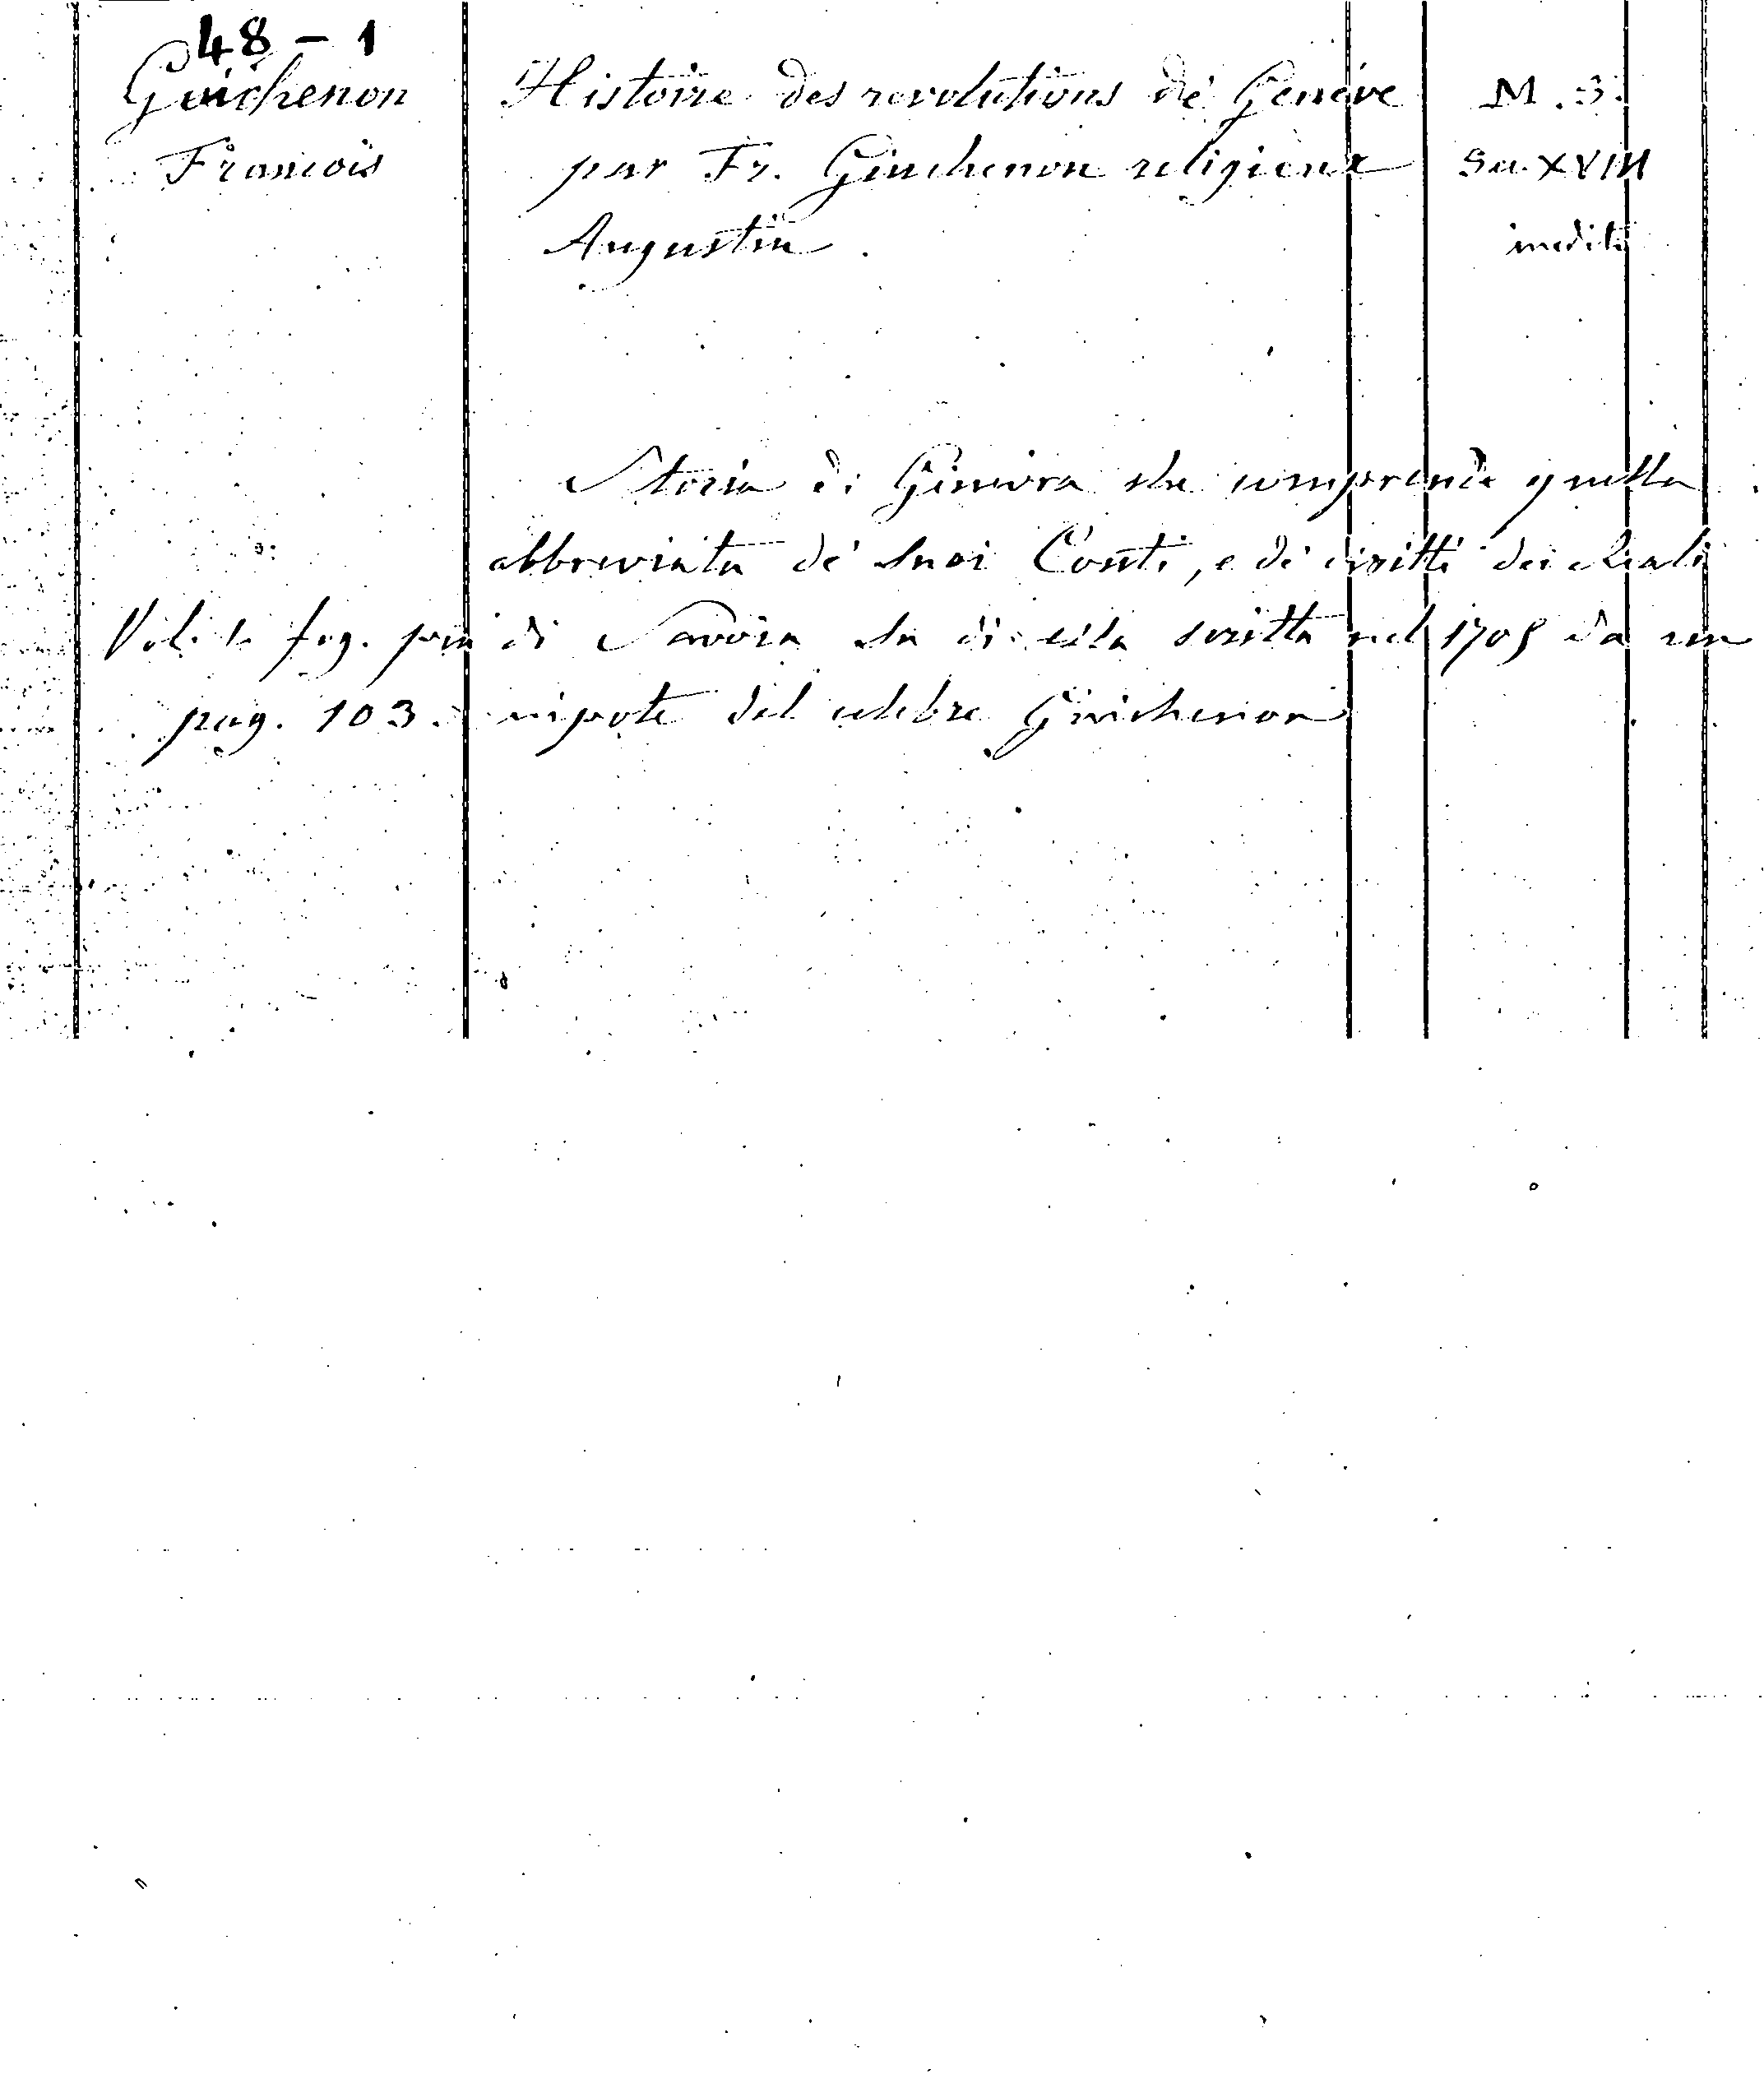 48 - 1
Guichenon Histoire des revolutions de Genève M. S.
François par Fr. Guichenon religieux Sec. XVIII
Augustin. inedito
Storia di Ginevra che comprende quella
abbreviata de' suoi Conti, e di diritti dei Reali
Vedi la fog. pria di Savoia su di essa scritta nel 1705 da un
pag. 103. nipote del celebre Guichenon